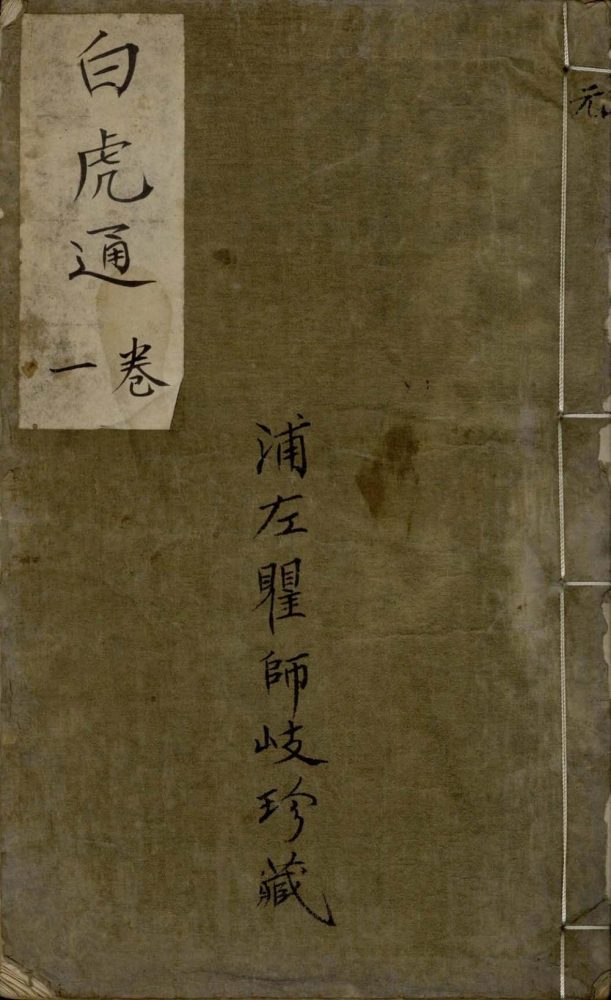 白虎通
卷一
浦左瞿師岐珍藏
元